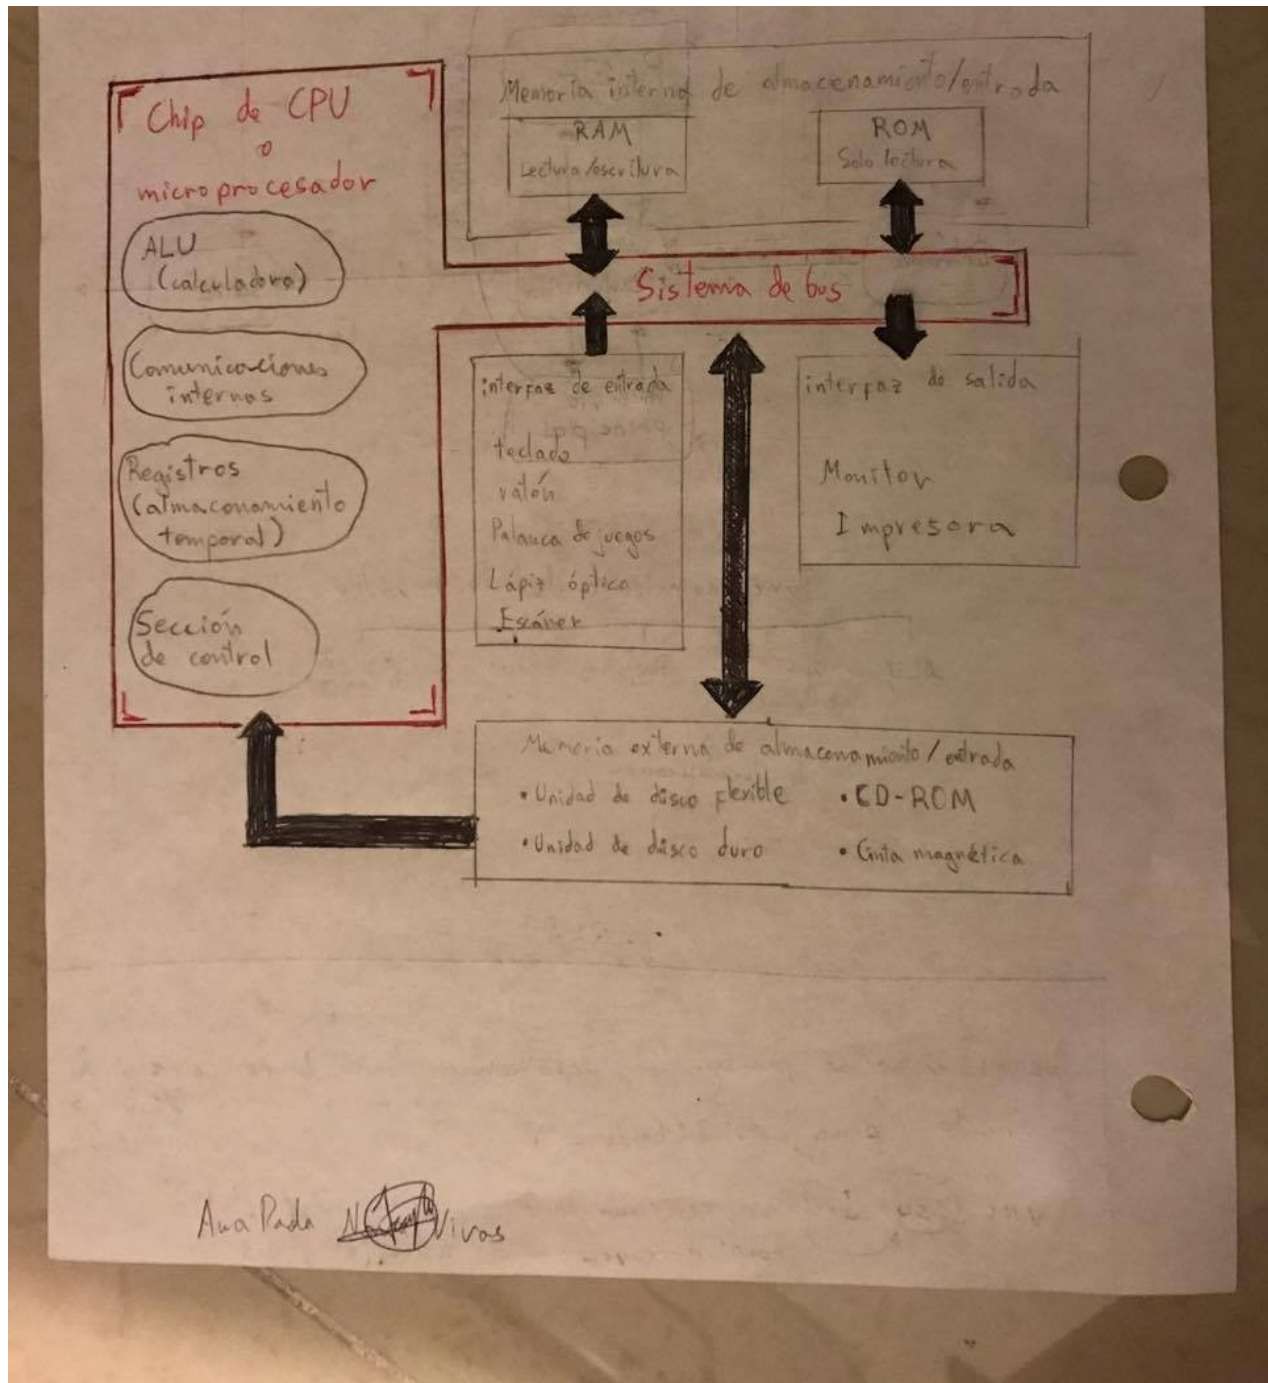 Chip de CPU
o
microprocesador
ALU
(calculadora)
Comunicaciones
internas
Registros
(almaconamiento
temporal)
Sección
de control
Memoria interna de almacenamiento/entrada
RAM
Lectura/escritura
ROM
Solo lectura
Sistema de bus
interfaz de entrada
teclado
ratón
Palanca de juegos
Lápiz óptico
Escáner
interfaz de salida
Monitor
Impresora
Memoria externa de almacenamiento/entrada
• Unidad de disco flexible
• CD-ROM
• Unidad de disco duro
• Cinta magnética
Ana Vivas